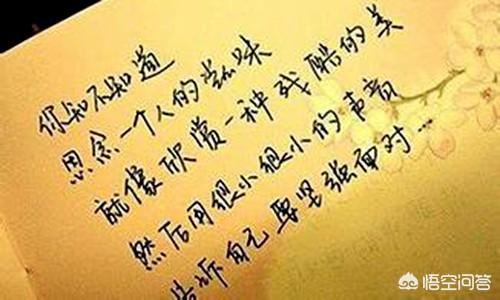 你知不知道
思念一个人的滋味
就像欣赏一种残酷的美
然后用很小很小的声音
告诉自己要坚强面对...
悟空问答